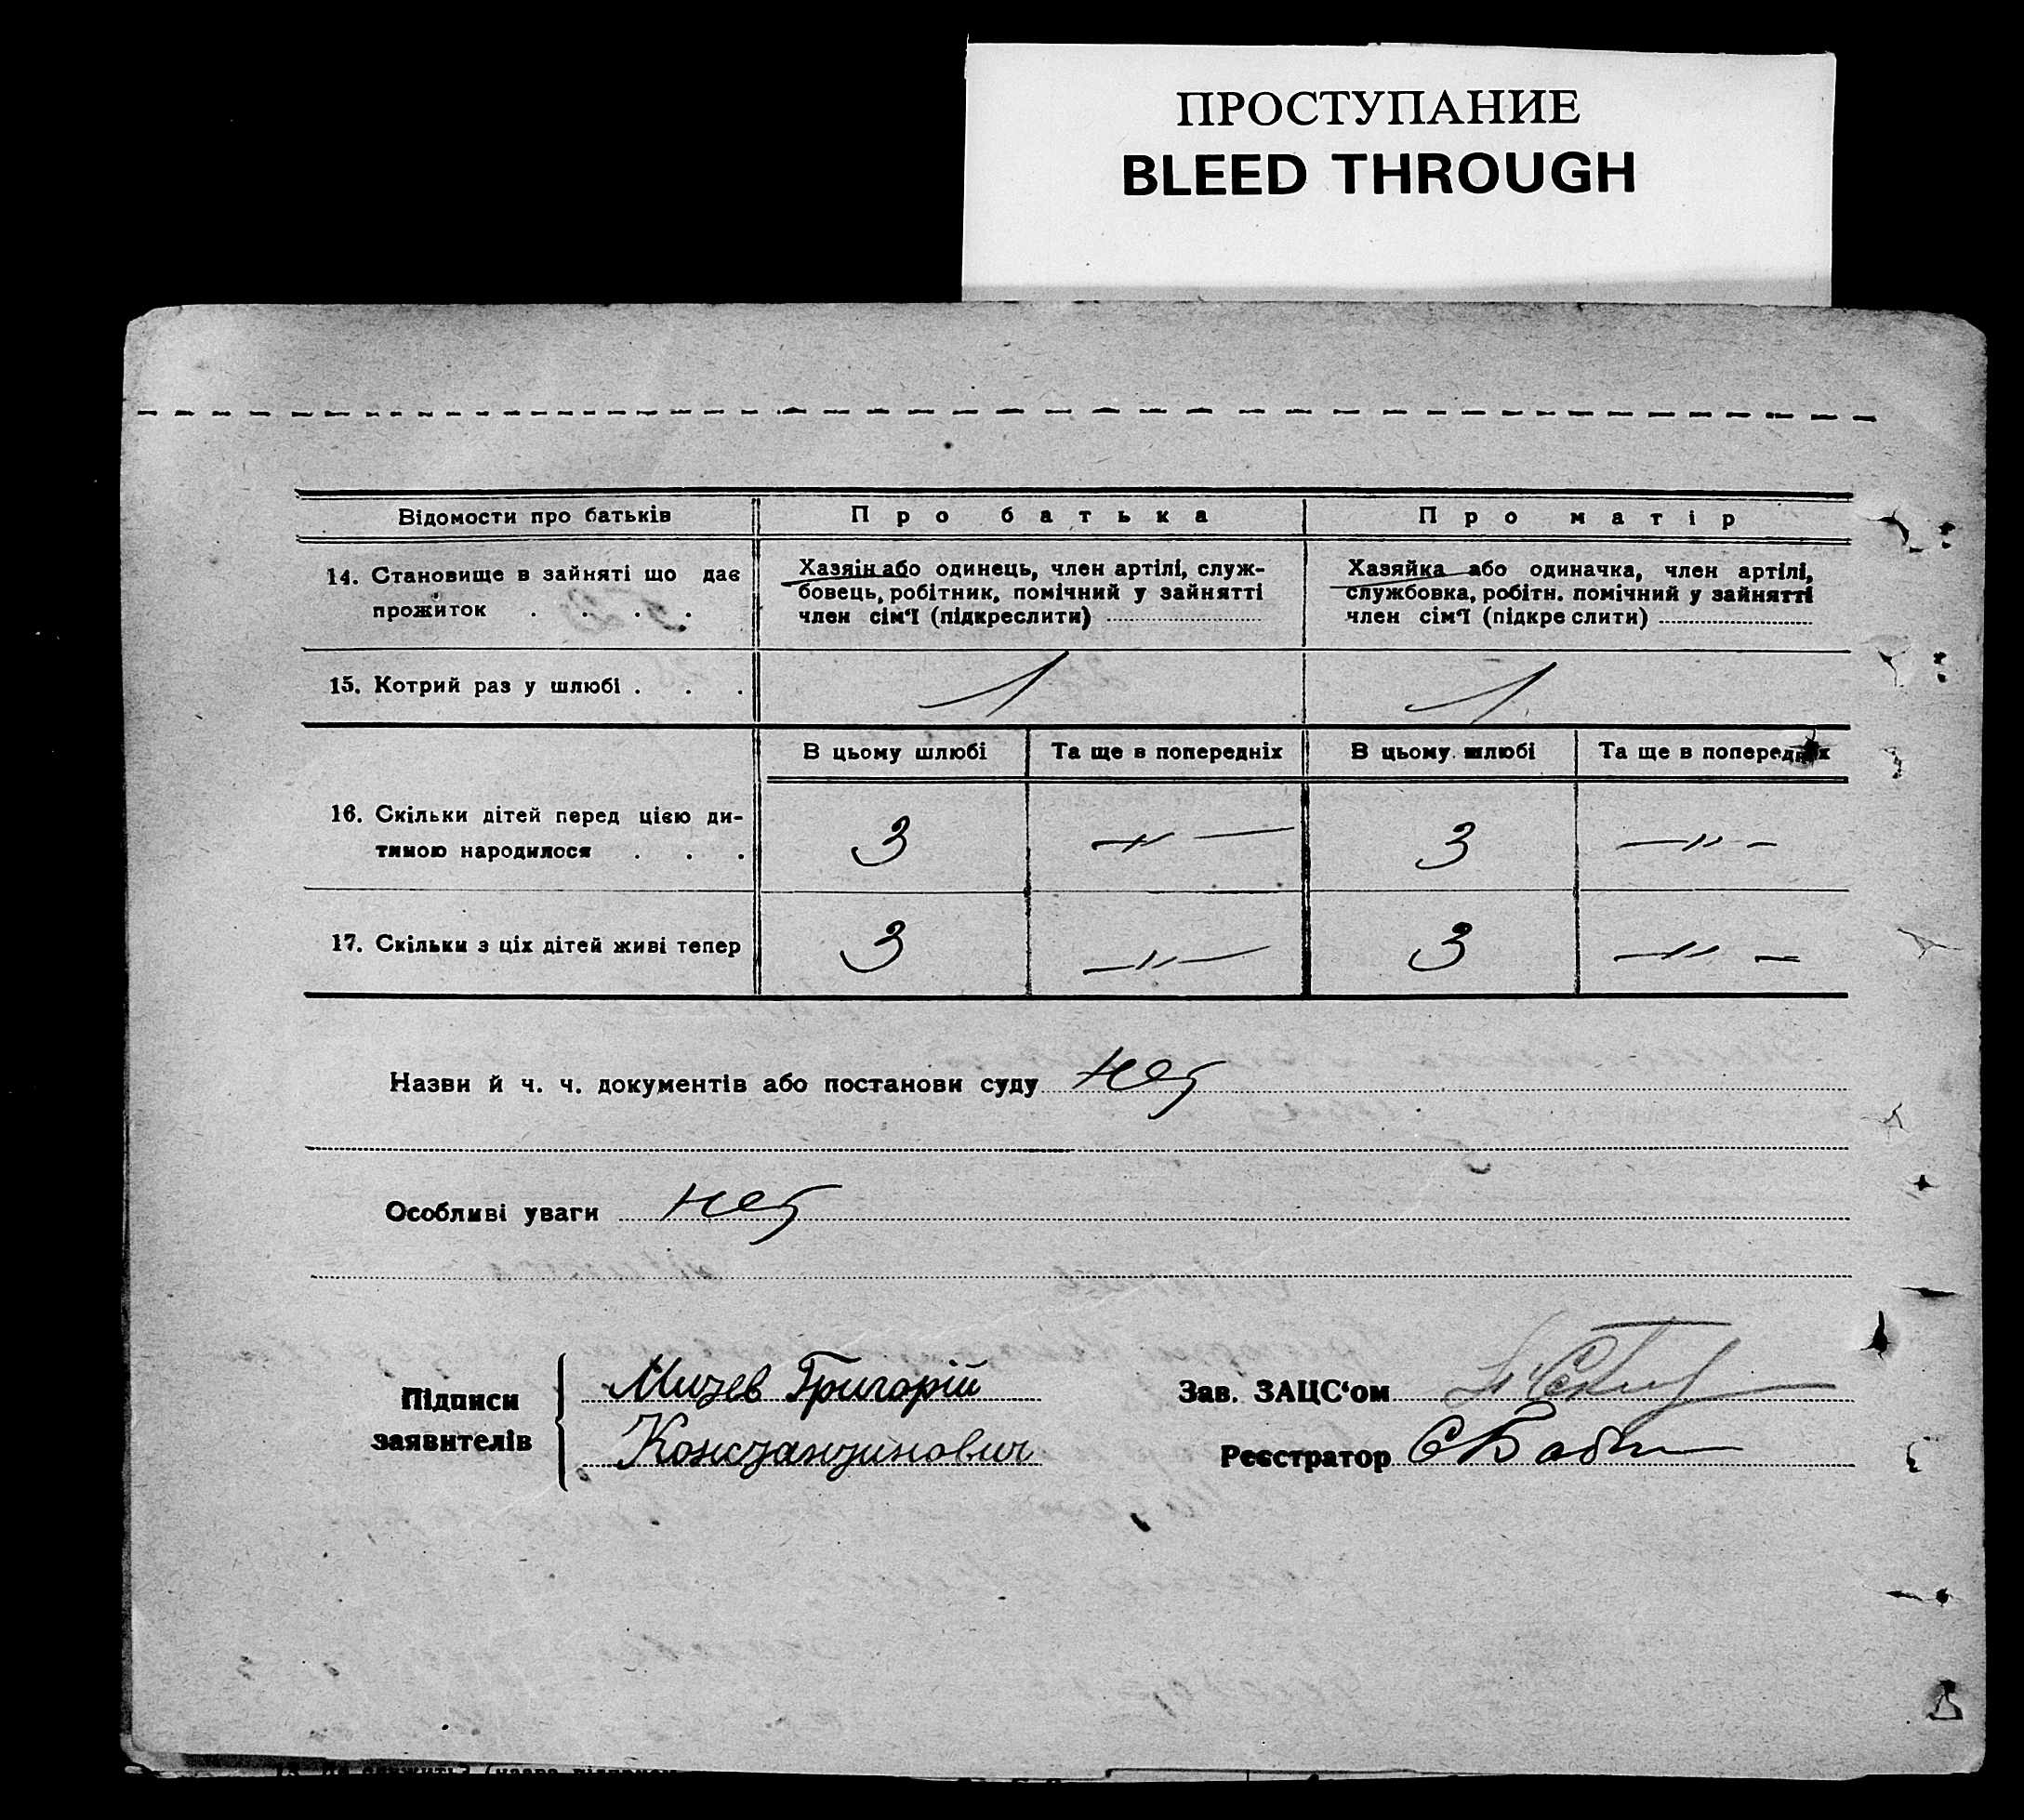 ПРОСТУПАНИЕ
BLEED THROUGH
Відомости про батьків
Про батька
Про матір
14. Становище в зайняті що дає
прожиток . . . .
Хазяін або одинець, член артілі, служ-
бовець, робітник, помічний у зайнятті
член сім'ї (підкреслити)
Хазяйка або одиначка, член артілі,
службовка, робітн. помічний у зайнятті
член сім'ї (підкреслити)
15. Котрий раз у шлюбі . . .
1
1
В цьому шлюбі
Та ще в попередніх
В цьому шлюбі
Та ще в попередніх
16. Скільки дітей перед цією ди-
тиною народилося . . .
3
—〃—
3
—〃—
17. Скільки з ціх дітей живі тепер
3
—〃—
3
—〃—
Назви й ч. ч. документів або постанови суду нет
Особливі уваги нет
Підписи
заявителів
Григорій
Константинович
Зав. ЗАЦС‘ом
Реєстратор